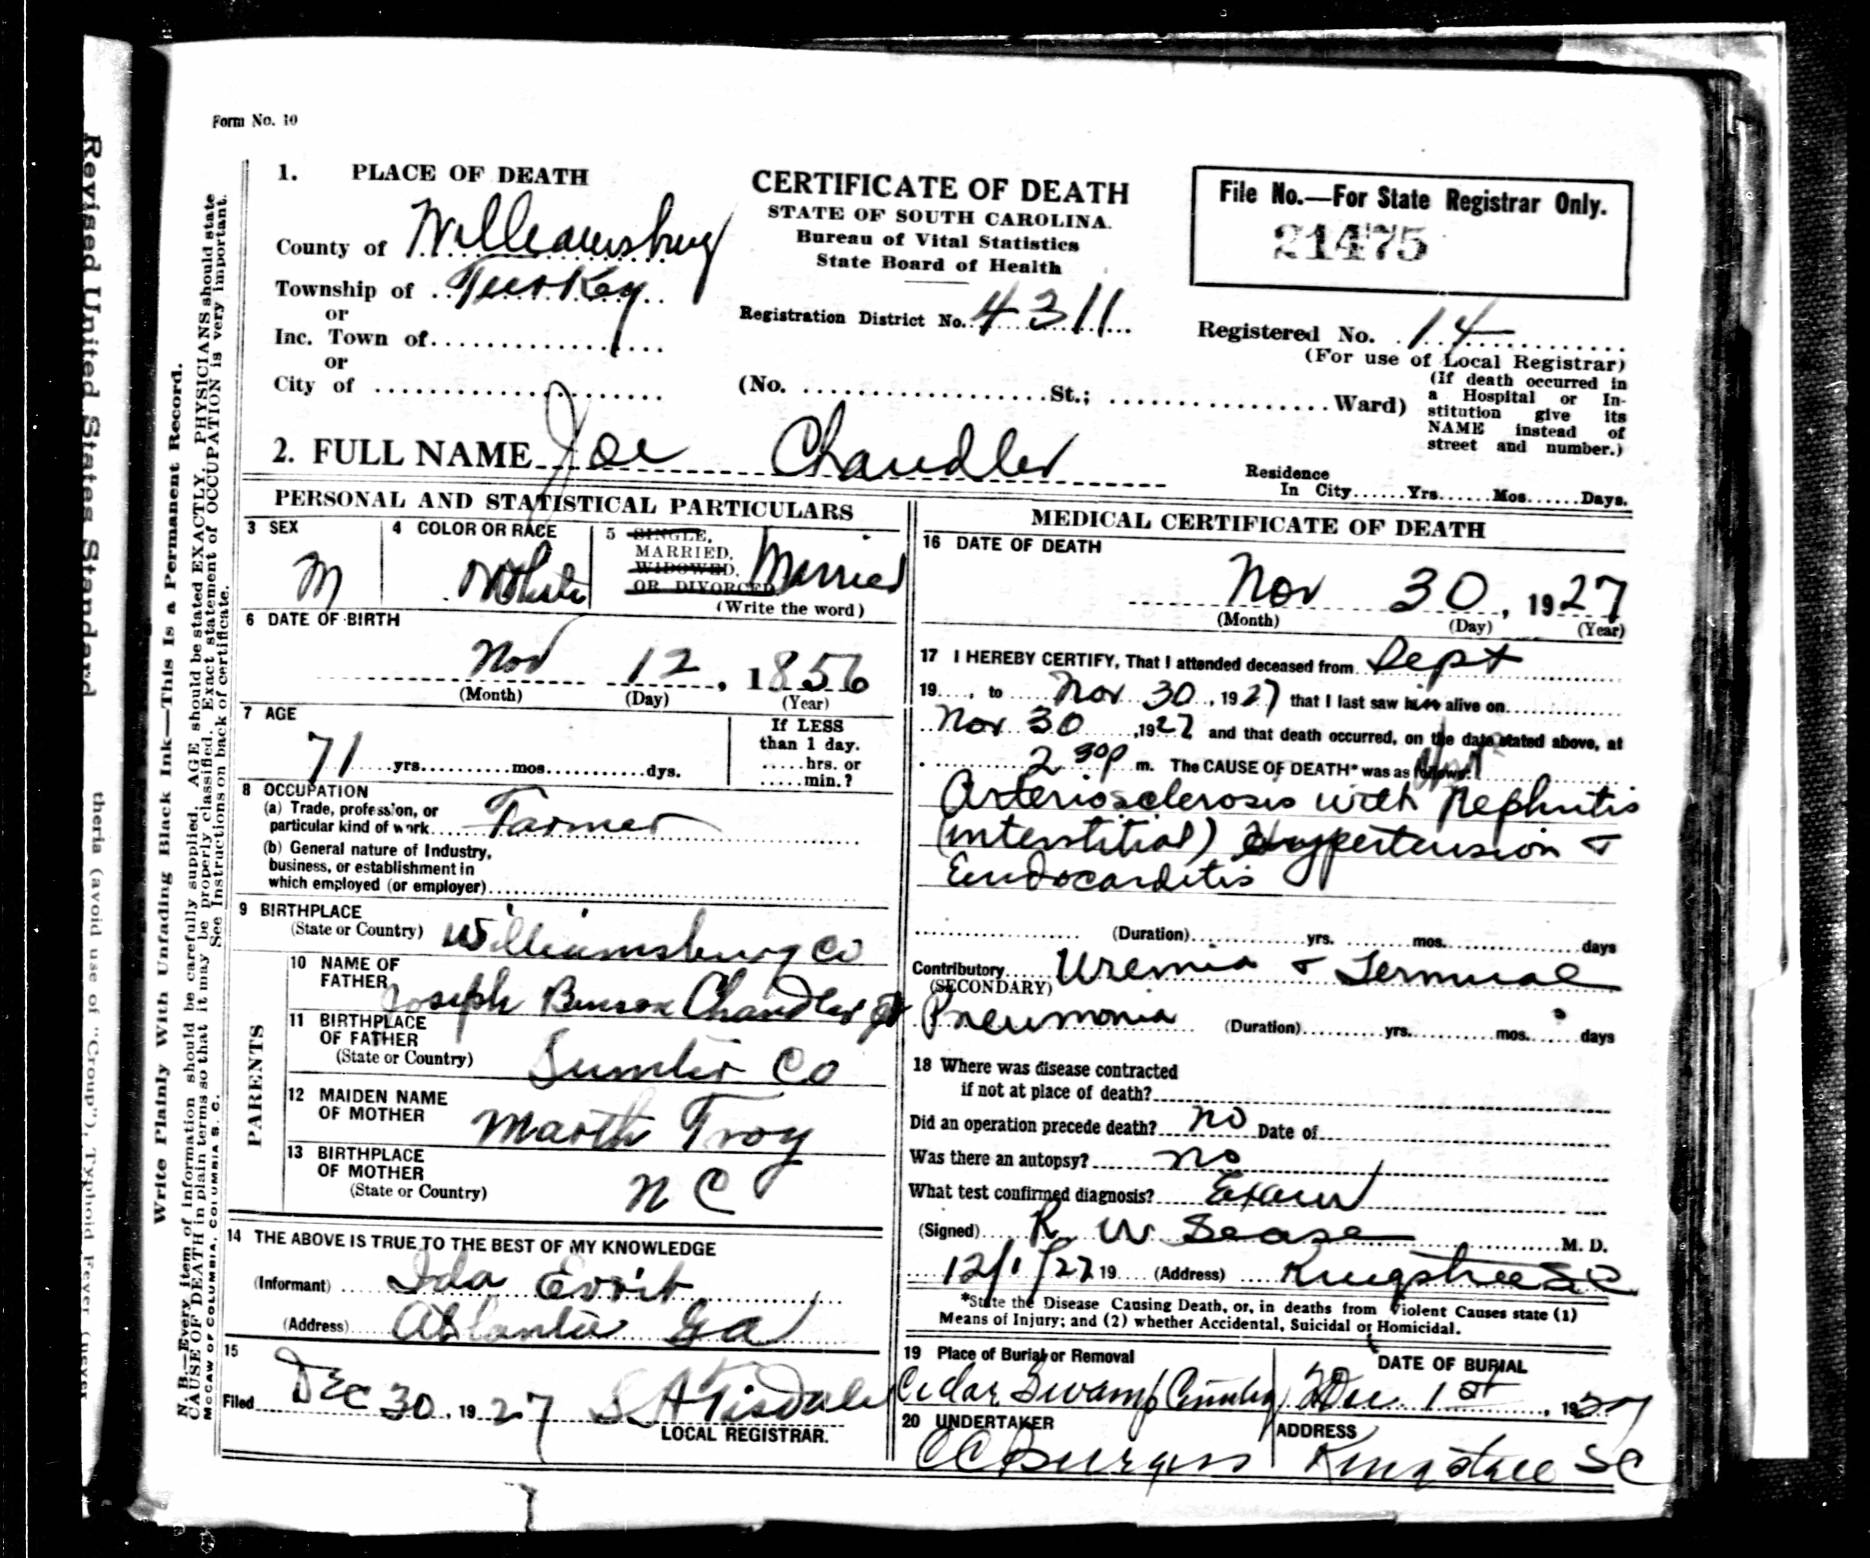 Form No. 10
1. PLACE OF DEATH
County of Williamsburg
Township of Turkey
or
Inc. Town of
or
City of
CERTIFICATE OF DEATH
STATE OF SOUTH CAROLINA.
Bureau of Vital Statistics
State Board of Health
Registration District No. 4311
(No. St.; Ward)
File No.—For State Registrar Only.
21475
Registered No. 14
(For use of Local Registrar)
(If death occurred in
a Hospital or In-
stitution give its
NAME instead of
street and number.)
2. FULL NAME Joe Chandler
Residence
In City Yrs. Mos. Days.
PERSONAL AND STATISTICAL PARTICULARS
3 SEX
M
4 COLOR OR RACE
White
5 SINGLE,
MARRIED,
WIDOWED,
OR DIVORCED
Married
(Write the word)
6 DATE OF BIRTH
Nov 12, 1856
(Month) (Day) (Year)
7 AGE
71 yrs. mos. dys.
If LESS
than 1 day.
hrs. or
min.?
8 OCCUPATION
(a) Trade, profession, or
particular kind of work Farmer
(b) General nature of Industry,
business, or establishment in
which employed (or employer)
9 BIRTHPLACE
(State or Country) Williamsburg Co
PARENTS
10 NAME OF
FATHER Joseph Benson Chandler
11 BIRTHPLACE
OF FATHER
(State or Country) Sumter Co
12 MAIDEN NAME
OF MOTHER Marth Troy
13 BIRTHPLACE
OF MOTHER
(State or Country) N C
14 THE ABOVE IS TRUE TO THE BEST OF MY KNOWLEDGE
(Informant) Ida
(Address) Atlanta Ga
15
Filed Dec 30, 1927 S A Tisdale
LOCAL REGISTRAR.
MEDICAL CERTIFICATE OF DEATH
16 DATE OF DEATH
Nov 30, 1927
(Month) (Day) (Year)
17 I HEREBY CERTIFY, That I attended deceased from Sept
19 , to Nov 30, 1927 that I last saw him alive on
Nov 30, 1927 and that death occurred, on the date stated above, at
2 30p m. The CAUSE OF DEATH* was as follows:
Arteriosclerosis with Nephritis
(interstitial) Hypertension &
Endocarditis
(Duration) yrs. mos. days
Contributory Uremia & Terminal
(SECONDARY)
Pneumonia (Duration) yrs. mos. days
18 Where was disease contracted
if not at place of death?
Did an operation precede death? no Date of
Was there an autopsy? no
What test confirmed diagnosis? Exam
(Signed) R W Sease M. D.
12/1/27 19 (Address) Kingstree SC
*State the Disease Causing Death, or, in deaths from Violent Causes state (1)
Means of Injury; and (2) whether Accidental, Suicidal or Homicidal.
19 Place of Burial or Removal
Cedar Swamp Cemetery
DATE OF BURIAL
Dec 1st, 1927
20 UNDERTAKER
C C Burgess
ADDRESS
Kingstree SC
Write Plainly With Unfading Black Ink—This Is a Permanent Record.
N. B.—Every item of information should be carefully supplied. AGE should be stated EXACTLY. PHYSICIANS should state
CAUSE OF DEATH in plain terms so that it may be properly classified. Exact statement of OCCUPATION is very important.
See Instructions on back of certificate.
McCAW OF COLUMBIA, COLUMBIA S. C.
Revised United States Standard
theria (avoid use of "Croup"), Typhoid Fever